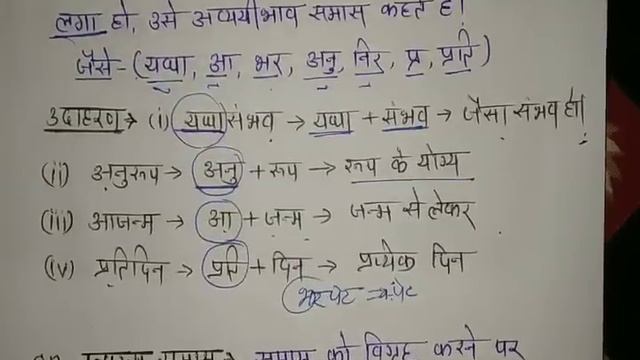 लगा हो, उसे अव्ययीभाव समास कहते हैं।
जैसे- (यथा, आ, भर, अनु, निर, प्र, प्रति)
उदाहरण→ (i) यथासंभव → यथा + संभव → जैसा संभव हो।
(ii) अनुरूप → अनु + रूप → रूप के योग्य
(iii) आजन्म → आ + जन्म → जन्म से लेकर
(iv) प्रतिदिन → प्रति + दिन → प्रत्येक दिन
भरपेट
समास को विग्रह करने पर